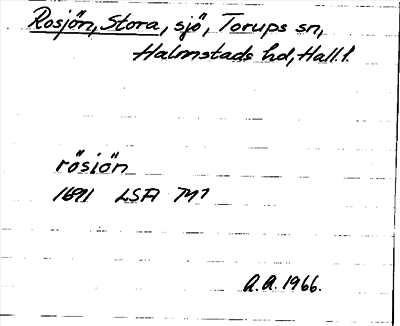 Rosjön, Stora, sjö, Torups sn,
Halmstads hd, Hall. l.
rösiön
1691 LSA
A.A. 1966.